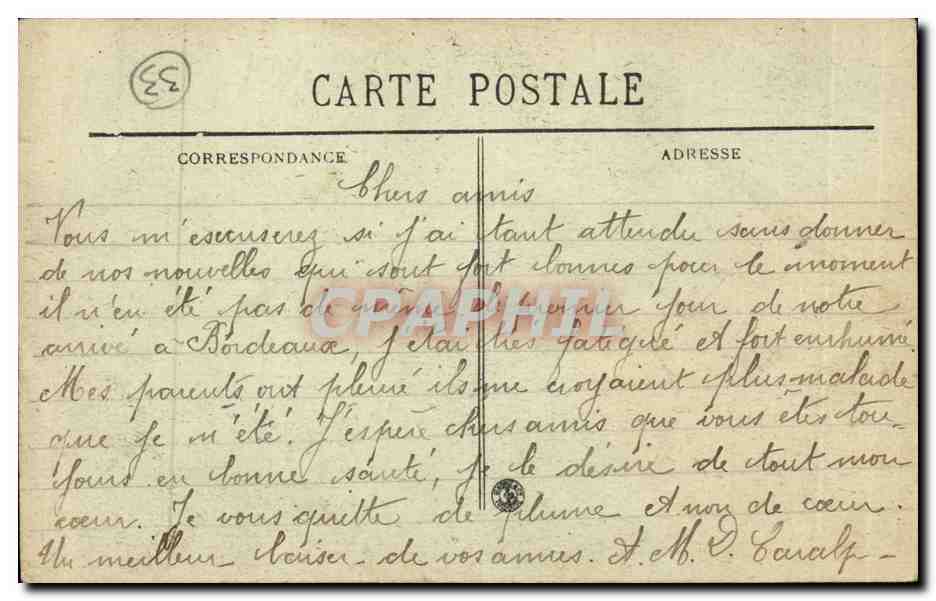 33
CARTE POSTALE
CORRESPONDANCE
ADRESSE
Chers amis
Vous m'escuserez si j'ai tant attendu sans donner
de nos nouvelles qui sont fort bonnes pour le moment
il n'en été pas de même le premier jour de notre
arrivé à Bordeaux, j'étai très fatigué et fort enrhumé.
Mes parents ont pleuré ils me croyaient plus malade
que je n'été. J'espère chers amis que vous êtes tou=
jours en bonne santé, je le désire de tout mon
cœur. Je vous quitte de plume et non de cœur.
Un meilleur baiser de vos amies. A. M. D. Caralp -
CPAPHIL